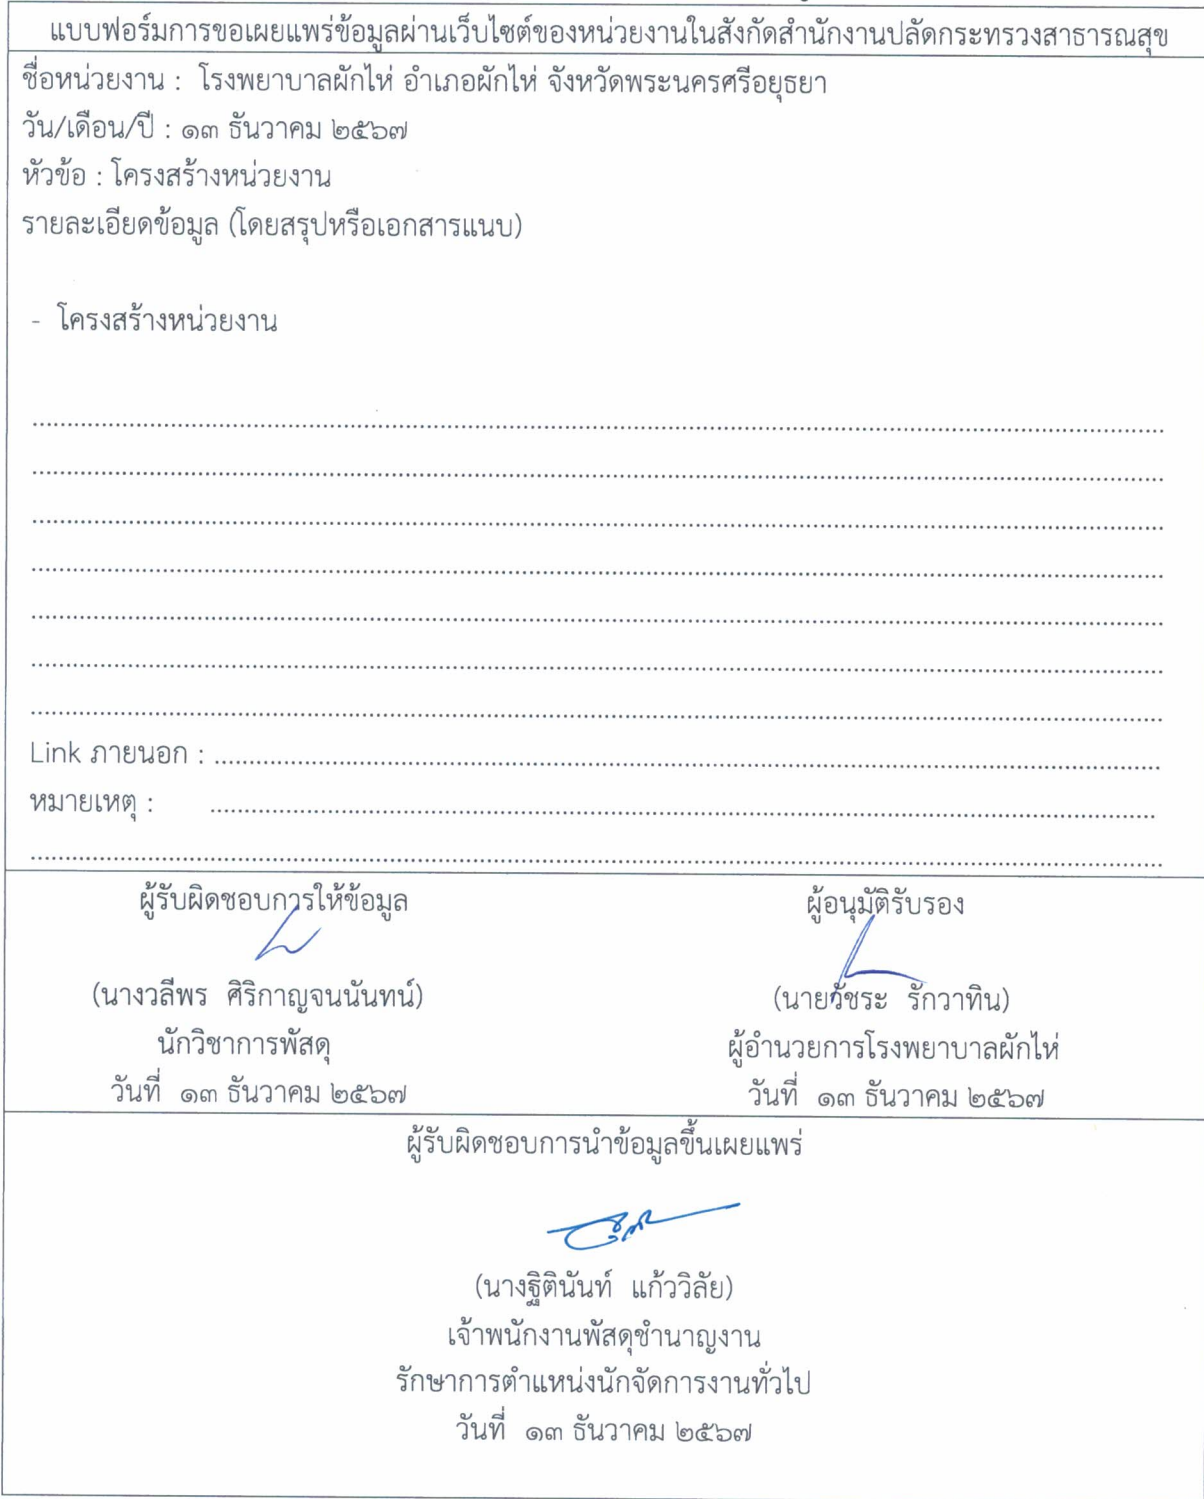 แบบฟอร์มการขอเผยแพร่ข้อมูลผ่านเว็บไซต์ของหน่วยงานในสังกัดสำนักงานปลัดกระทรวงสาธารณสุข
ชื่อหน่วยงาน : โรงพยาบาลผักไห่ อำเภอผักไห่ จังหวัดพระนครศรีอยุธยา
วัน/เดือน/ปี : ๑๓ ธันวาคม ๒๕๖๗
หัวข้อ : โครงสร้างหน่วยงาน
รายละเอียดข้อมูล (โดยสรุปหรือเอกสารแนบ)
- โครงสร้างหน่วยงาน
Link ภายนอก :
หมายเหตุ :
ผู้รับผิดชอบการให้ข้อมูล
(นางวลีพร ศิริกาญจนนันทน์)
นักวิชาการพัสดุ
วันที่ ๑๓ ธันวาคม ๒๕๖๗
ผู้อนุมัติรับรอง
(นายวัชระ รักวาทิน)
ผู้อำนวยการโรงพยาบาลผักไห่
วันที่ ๑๓ ธันวาคม ๒๕๖๗
ผู้รับผิดชอบการนำข้อมูลขึ้นเผยแพร่
(นางฐิตินันท์ แก้ววิลัย)
เจ้าพนักงานพัสดุชำนาญงาน
รักษาการตำแหน่งนักจัดการงานทั่วไป
วันที่ ๑๓ ธันวาคม ๒๕๖๗